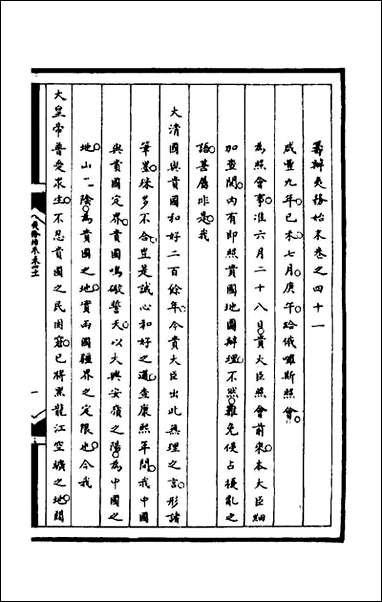 籌辦夷務始末卷之四十一
咸豐九年己未七月庚午給俄囉斯照會
為照會事准六月二十八日貴大臣照會前來本大臣細
加查閱內有即照貴國地圖辦理不然難免侵占擾亂之
語甚屬非是我
大清國與貴國和好二百餘年今貴大臣出此無理之言形諸
筆墨殊多不合豈是誠心和好之道查康熙年間我中國
與貴國定界貴國鳴礮誓天以大興安嶺之陽為中國之
地山之陰為貴國之地實兩國疆界之定限也今我
大皇帝普愛眾生不忍貴國之民困窮已將黑龍江空曠之地間